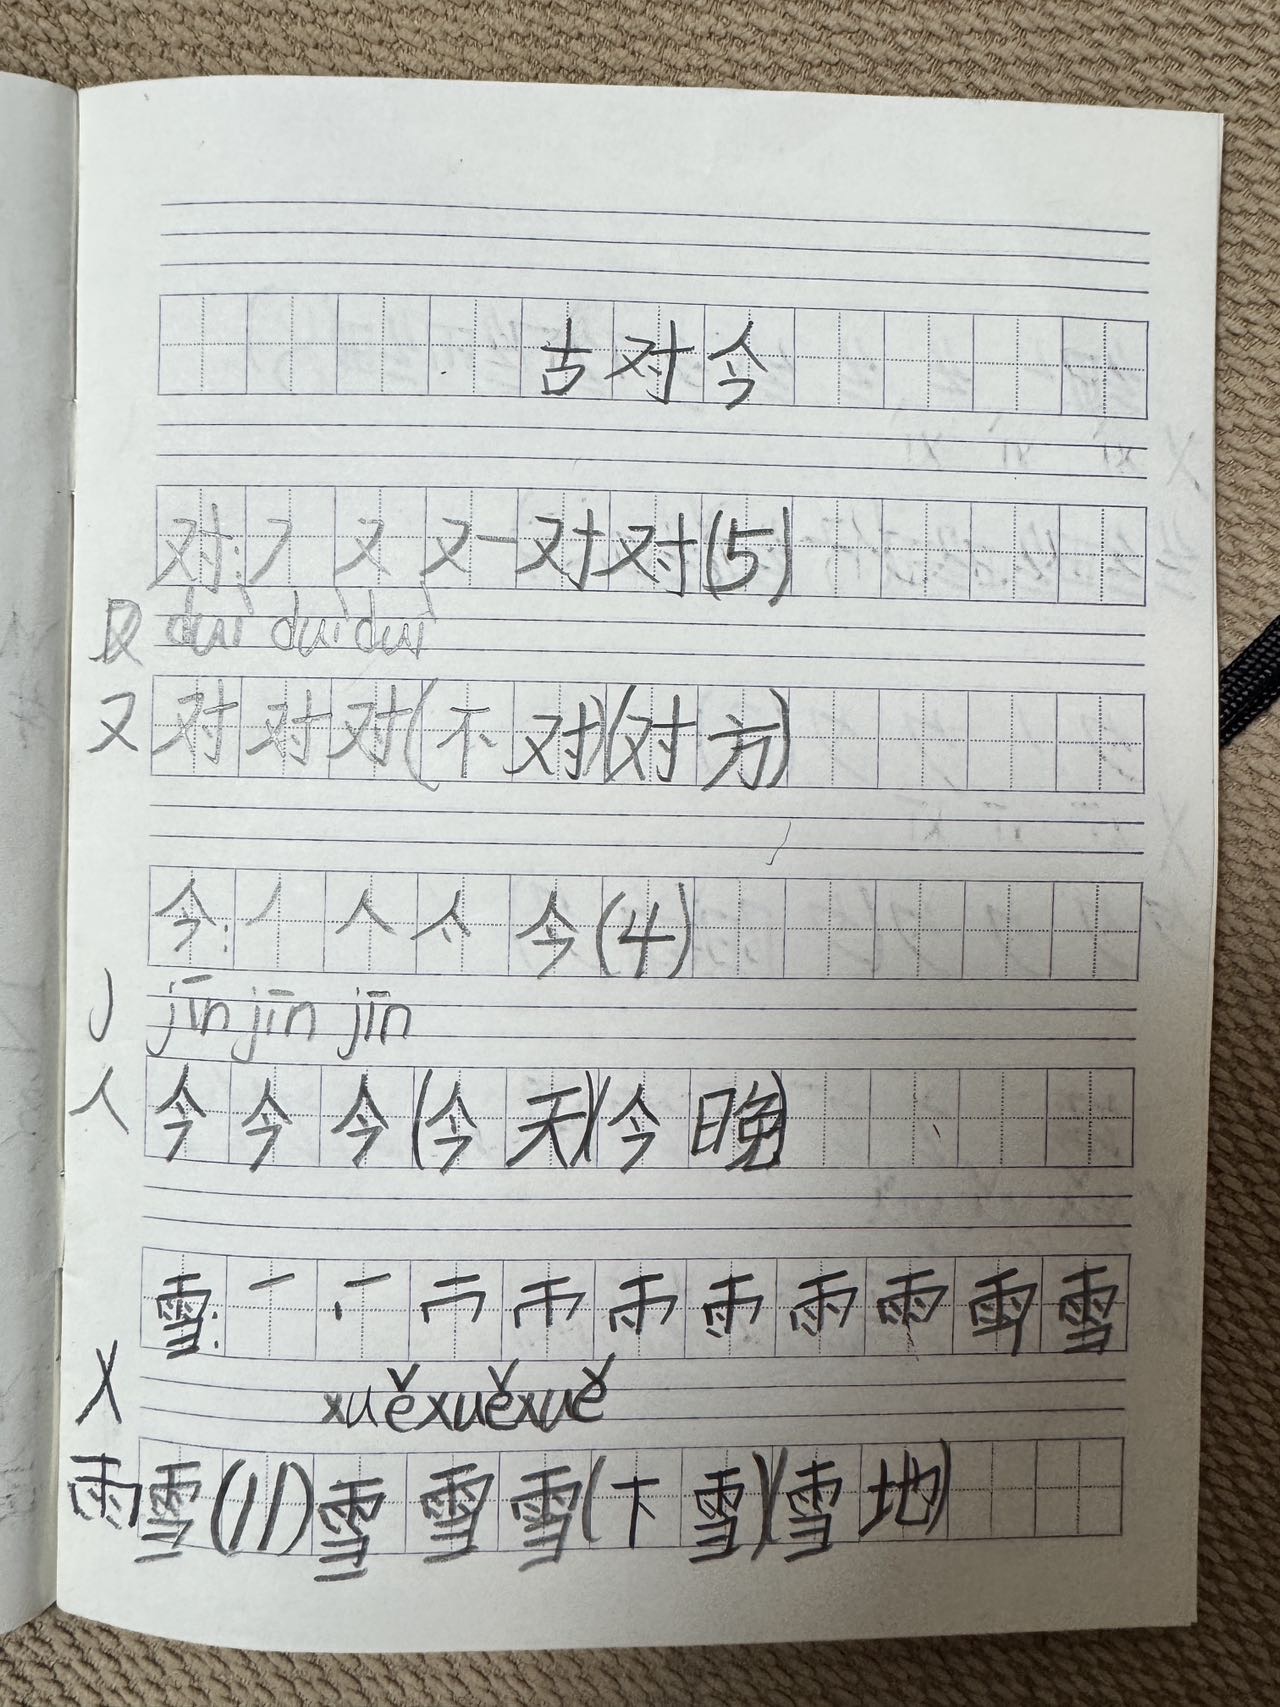 古对今
对:フ又又一对对(5)
D duì duì duì
又 对对对(不对)(对方)
今:丿人亽今(4)
J jīn jīn jīn
人 今今今(今天)(今晚)
雪:一 雪
X xuě xuě xuě
雨 雪(11)雪雪雪(下雪)(雪地)